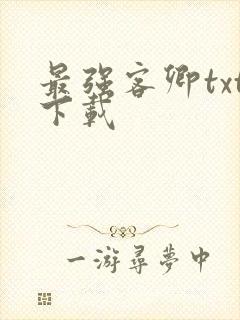 最强客卿txt
下載
一游尋夢中